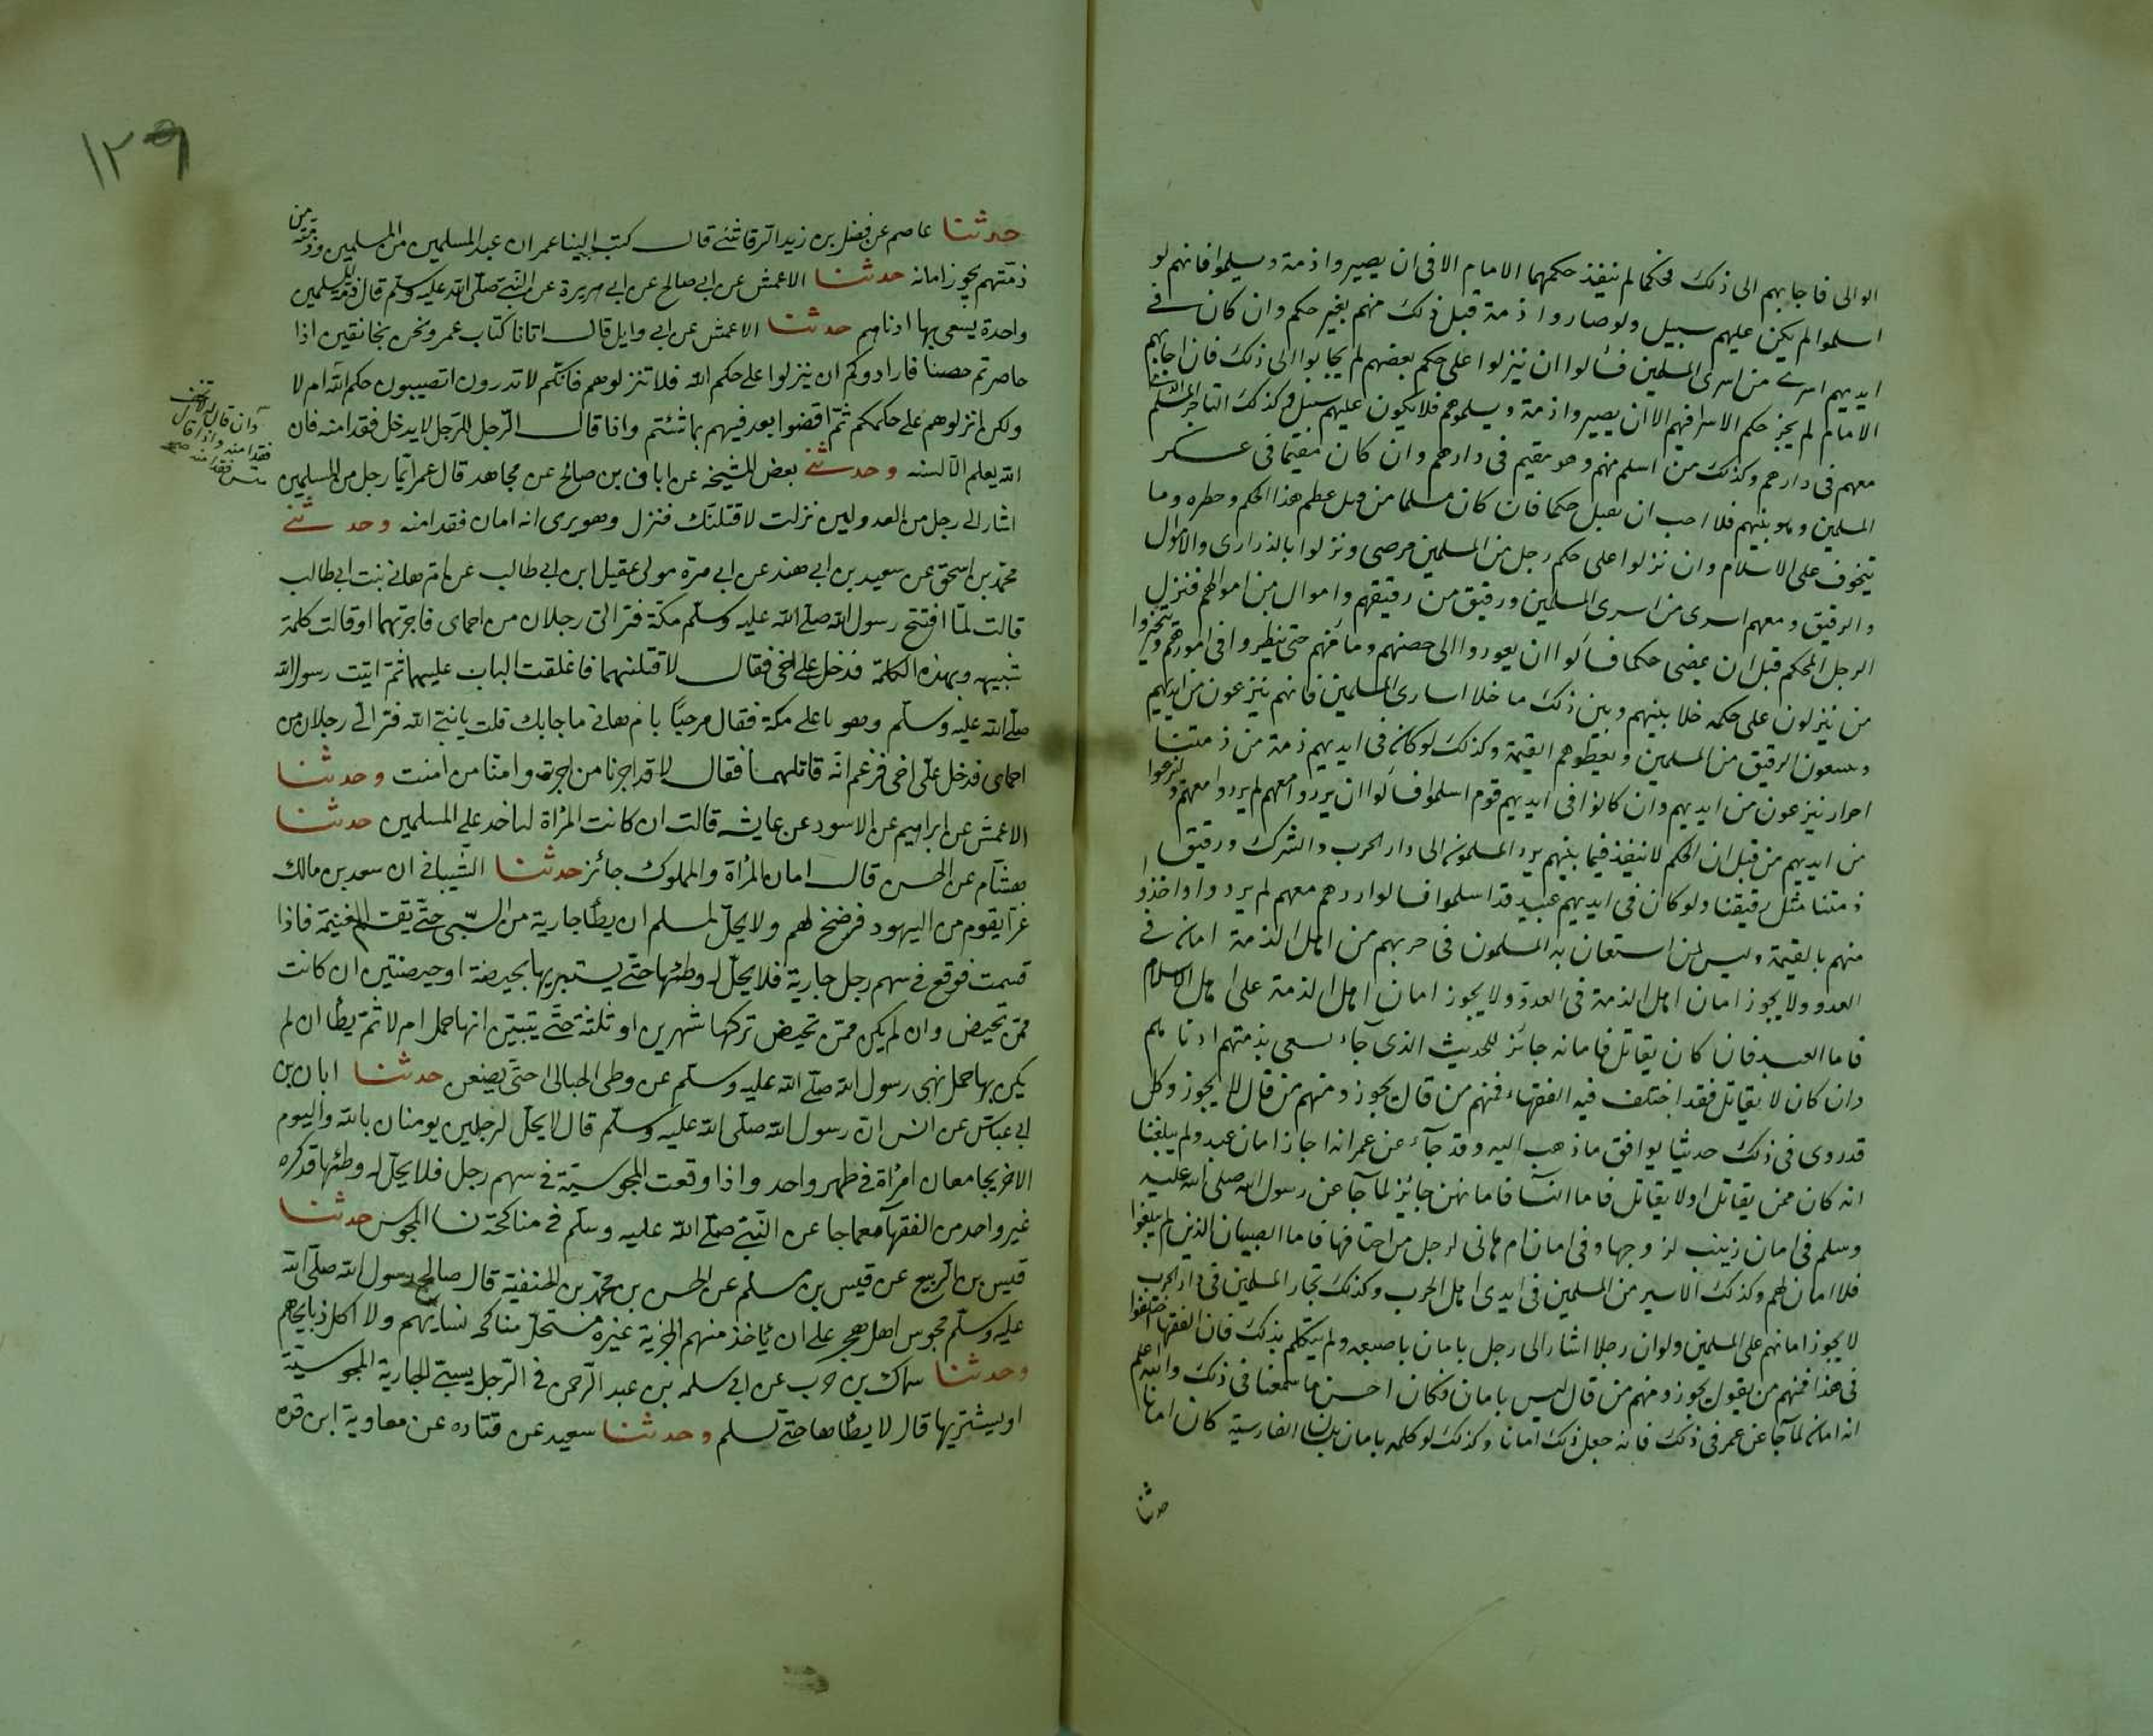 الوالى فاجابهم الى ذلك فحكما لم ينفذ حكمهما الامام الا فى ان يصيروا ذمة ويسلموا فانهم لو
اسلموا لم يكن عليهم سبيل ولو صاروا ذمة قبل ذلك منهم بغير حكم وان كان فى
ايديهم اسرى من اسرى المسلمين فسألوا ان ينزلوا على حكم بعضهم لم يجابوا الى ذلك فان اجابهم
الامام لم يجز حكم الاسر فيهم الا ان يصيروا ذمة ويسلموهم فلا يكون عليهم سبيل وكذلك التاجر المسلم
معهم فى دارهم وكذلك من اسلم منهم وهو مقيم فى دارهم وان كان مقيما فى عسكر
المسلمين وهو بينهم فلا احب ان يقبل حكما فان كان مسلما من قبل عظم هذا الحكم وخطره وما
يتخوف على الاسلام وان نزلوا على حكم رجل من المسلمين مرضى ونزلوا بالذرارى والاموال
والرقيق ومعهم اسرى من اسرى المسلمين ورقيق من رقيقهم واموال من اموالهم فنزل
الرجل المحكم قبل ان يمضى حكما فسألوا ان يعودوا الى حصنهم ومأمنهم حتى ينظروا فى امورهم ويتخيروا
من ينزلون على حكمه خلا بينهم وبين ذلك ما خلا اسارى المسلمين فانهم ينزعون من ايديهم
ويبيعون الرقيق من المسلمين ويعطوهم القيمة وكذلك لو كان فى ايديهم ذمة من ذمتنا
احرار ينزعون من ايديهم وان كانوا فى ايديهم قوم اسلموا فسألوا ان يردوا معهم لم يردوا معهم ولينزعوا
من ايديهم من قبل ان الحكم لا ينفذ فيما بينهم برد المسلمون الى دار الحرب والشرك ورقيق
ذمتنا مثل رقيقنا ولو كان فى ايديهم عبيد قد اسلموا فسالوا ردهم معهم لم يردوا واخذوا
منهم بالقيمة وليس لمن استعان به المسلمون فى حربهم من اهل الذمة امان فى
العدو ولا يجوز امان اهل الذمة فى العدو ولا يجوز امان اهل الذمة على اهل الاسلام
فاما العبد فان كان يقاتل فامانه جائز للحديث الذى جاء يسعى بذمتهم ادناهم
وان كان لا يقاتل فقد اختلف فيه الفقهاء فمنهم من قال يجوز ومنهم من قال لا يجوز وكل
قد روى فى ذلك حديثا يوافق ما ذهب اليه وقد جاء عن عمر انه اجاز امان عبد ولم يبلغنا
انه كان ممن يقاتل او لا يقاتل فاما النسآ فامانهن جائز لما جآ عن رسول الله صلى الله عليه
وسلم فى امان زينب لزوجها وفى امان ام هانى لرجل من احمائها فاما الصبيان الذين لم يبلغوا
فلا امان لهم وكذلك الاسير من المسلمين فى ايدى اهل الحرب وكذلك تجار المسلمين فى دار الحرب
لا يجوز امانهم على المسلمين ولو ان رجلا اشار الى رجل بامان باصبعه ولم يتكلم بذلك فان الفقها اختلفوا
فى هذا فمنهم من يقول يجوز ومنهم من قال ليس بامان فكان احسن ما سمعنا فى ذلك والله اعلم
انه امان لما جآ عن عمر فى ذلك فانه جعل ذلك امانا وكذلك لو كلمه بامان بلسان الفارسية كان امانا
حدثنا
١٢٩
حدثنا عاصم عن فضل بن زيد الرقاشى قال كتب الينا عمر ان عبد المسلمين من المسلمين وذمته من
ذمتهم يجوز امانه حدثنا الاعمش عن ابى صالح عن ابى هريرة عن النبى صلى الله عليه وسلم قال ذمة المسلمين
واحدة يسعى بها ادناهم حدثنا الاعمش عن ابى وايل قال اتانا كتاب عمر ونحن بخانقين اذا
حاصرتم حصنا فارادوكم ان ينزلوا على حكم الله فلا تنزلوهم فانكم لا تدرون اتصيبون حكم الله ام لا
ولكن انزلوهم على حكمكم ثم اقضوا بعد فيهم بما شئتم واذا قال الرجل للرجل لا يدخل فقد امنه فان
وان قال له لا تخف
فقد امنه واذا قال
فقد امنه صح
الله يعلم الالسنه وحدثنى بعض المشيخة عن ابان بن صالح عن مجاهد قال عمر ايما رجل من المسلمين
اشار الى رجل من العدو لين نزلت لاقتلنك فنزل وهو يرى انه امان فقد امنه وحدثنى
محمد بن اسحق عن سعيد بن ابى هند عن ابى مرة مولى عقيل ابن ابى طالب عن ام هانى بنت ابى طالب
قالت لما افتتح رسول الله صلى الله عليه وسلم مكة فر الى رجلان من احماى فاجرتهما او قالت كلمة
شبيهه بهذه الكلمة فدخل على اخى فقال لاقتلنهما فاغلقت الباب عليهما ثم اتيت رسول الله
صلى الله عليه وسلم وهو باعلى مكة فقال مرحبا بام هانى ما جابك قلت يا نبى الله فر الى رجلان من
احماى فدخل على اخى فزعم انه قاتلهما فقال لا قد اجرنا من اجرت وامنا من امنت وحدثنا
الاعمش عن ابراهيم عن الاسود عن عايشه قالت ان كانت المرأة لتاخذ على المسلمين حدثنا
هشام عن الحسن قال امان المرأة والمملوك جائز حدثنا الشيبانى ان سعد بن مالك
غزا بقوم من اليهود فرضخ لهم ولا يحل لمسلم ان يطأ جارية من السبى حتى يقسم الغنيمة فاذا
قسمت فوقع فى سهم رجل جارية فلا يحل له وطئها حتى يستبريها بحيضة او حيضتين ان كانت
ممن تحيض وان لم يكن ممن تحيض تركها شهرين او ثلثة حتى يتبين انها حمل ام لا ثم يطأ ان لم
يكن بها حمل نهى رسول الله صلى الله عليه وسلم عن وطى الحبالى حتى يضعن حدثنا ابان بن
ابى عباش عن انس ان رسول الله صلى الله عليه وسلم قال لا يحل لرجلين يومنان بالله واليوم
الاخر يجامعان امرأة فى طهر واحد واذا وقعت المجوسية فى سهم رجل فلا يحل له وطئها قد كره
غير واحد من الفقهآ مما جا عن النبى صلى الله عليه وسلم فى مناكحة نسا المجوس حدثنا
قيس بن الربيع عن قيس بن مسلم عن الحسن بن محمد بن الحنفية قال صالح رسول الله صلى الله
عليه وسلم مجوس اهل هجر على ان ياخذ منهم الجزية غيره مستحل مناكحة نسايهم ولا اكل ذبايحهم
وحدثنا سماك بن حرب عن ابى سلمه بن عبد الرحمن فى الرجل يسبى الجارية المجوسية
او يشتريها قال لا يطاها حتى تسلم وحدثنا سعيد عن قتاده عن معاوية ابن قره